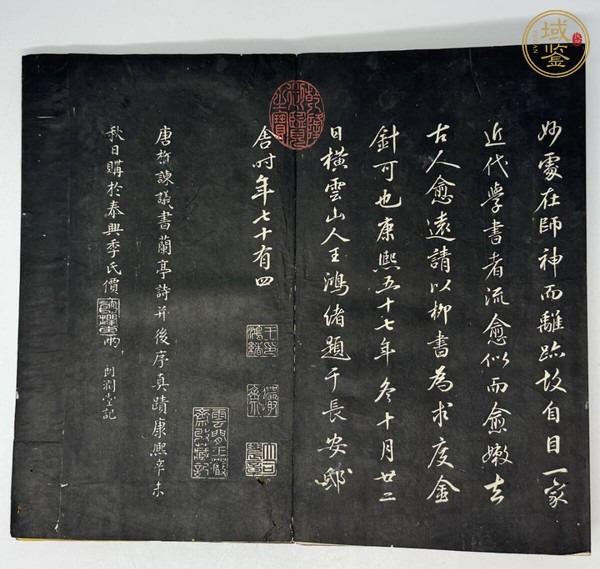 妙處在師神而離跡故自目一家
近代學書者流愈似而愈嫩去
古人愈遠請以柳書為求度金
針可也康熙五十七年冬十月廿二
日橫雲山人王鴻緒題于長安邸
舍時年七十有四
王印鴻緒
雲間王
唐柳諫議書蘭亭詩并後序真蹟康熙辛未
秋日購於泰興季氏價
潤堂記
域鑒